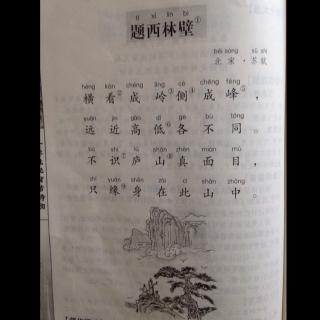 tí xī lín bì
题西林壁①
běi sòng sū shì
北宋·苏轼
héng kàn chéng lǐng cè chéng fēng
横看②成岭侧成峰⑤,
yuǎn jìn gāo dī gè bù tóng
远近高低⑥各不同。
bù shí lú shān zhēn miàn mù
不识⑦庐山⑧真面目,
zhǐ yuán shēn zài cǐ shān zhōng
只缘⑨身在此山中。